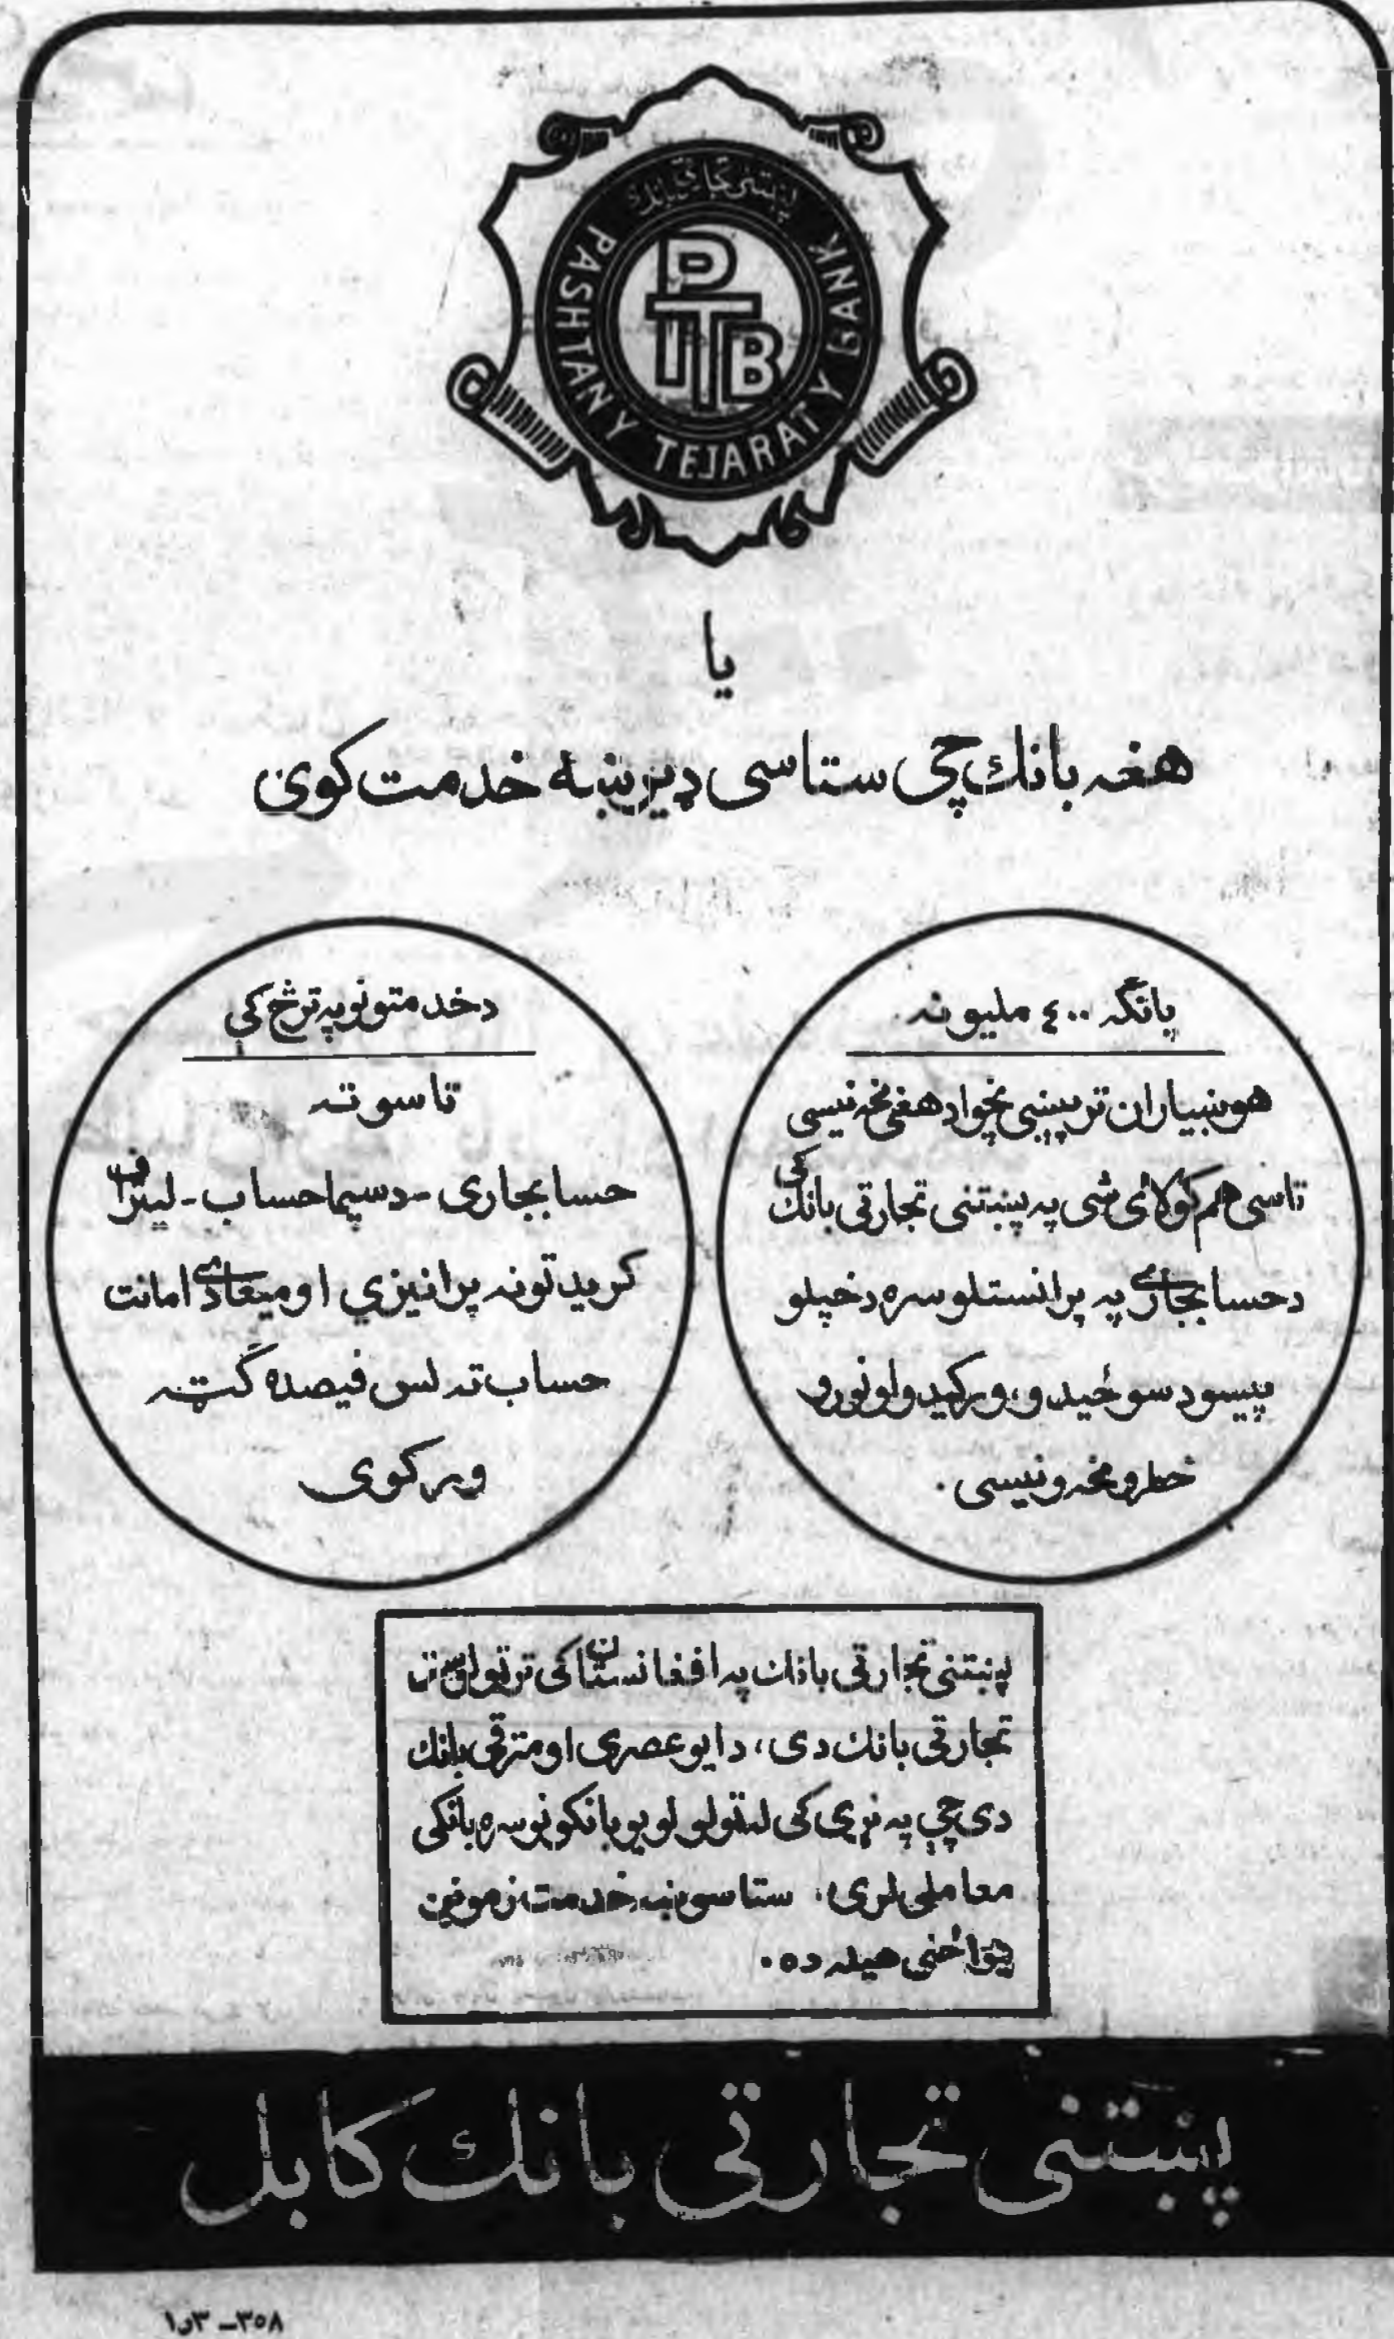 پښتنی تجارتی بانك
PASHTANY TEJARATY BANK
PTB
یا
هغه بانك چی ستاسی ډیر ښه خدمت کوی
پانګه ٤٠٠ ملیونه
هوښیاران تر پیښی نخوا د هغی مخه نیسی
تاسی هم کولای شی په پښتنی تجارتی بانك کی
د حسابجاری په پرانستلو سره د خپلو
پیسو د سوځیدو، ورکیدو او نورو
خطرو مخه ونیسی .
د خدمتونو په ترڅ کی
تاسو ته
حسابجاری - د سپما حساب - لیترآف
کریدتونه پرانیزي او میعادی امانت
حساب ته لس فیصده گټه
ورکوی
پښتنی تجارتی بانك په افغانستان کی تر ټولو
تجارتی بانك دی، دا یو عصری او مترقی بانك
دی چی په نړی کی له ټولو لویو بانکونو سره بانکی
معاملی لری، ستاسو ښه خدمت زمونږ
یواځنی هیله ده.
پښتنی تجارتی بانك کابل
٣٥٨ - ٣ر١